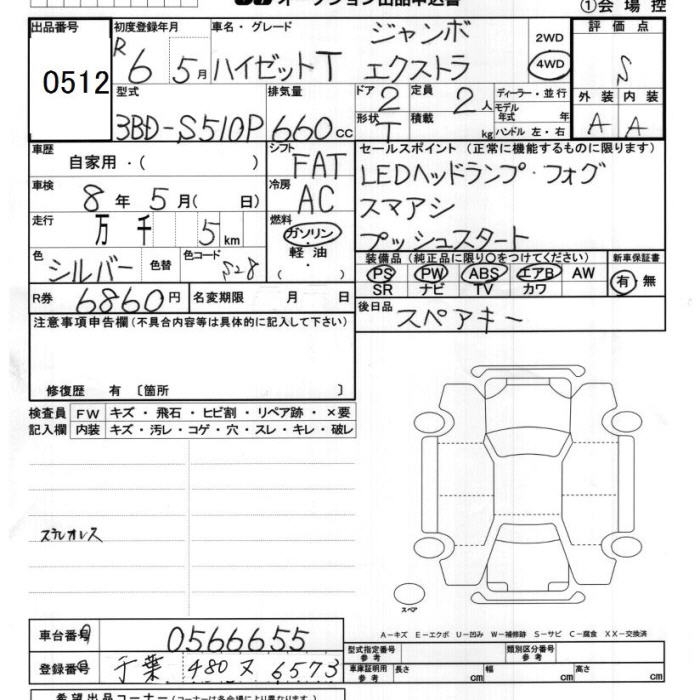 オークション出品申込書
①会場控
出品番号
0512
初度登録年月
R6 5月
車名・グレード
ハイゼットT ジャンボ エクストラ
2WD
4WD
評価点
S
型式
3BD-S510P
排気量
660cc
ドア 2
定員 2人
形状 T
積載 kg
ディーラー・並行
モデル年式 年式
ハンドル 左・右
外装 内装
A A
車歴
自家用・( )
シフト
FAT
車検
8年 5月( 日)
冷房
AC
走行
万 千 5km
燃料
ガソリン
軽油
( )
色
シルバー
色替
色コード
S28
R券
6860円
名変期限 月 日
セールスポイント (正常に機能するものに限ります)
LEDヘッドランプ・フォグ
スマアシ
プッシュスタート
装備品 (純正品に限り○をつけてください)
PS PW ABS エアB AW
SR ナビ TV カワ
新車保証書
有・無
後日品
スペアキー
注意事項申告欄(不具合内容等は具体的に記入して下さい)
修復歴 有 〔箇所 〕
検査員記入欄
FW キズ・飛石・ヒビ割・リペア跡・×要
内装 キズ・汚レ・コゲ・穴・スレ・キレ・破レ
ステレオレス
スペア
A-キズ E-エクボ U-凹み W-補修跡 S-サビ C-腐食 XX-交換済
車台番号
0566655
登録番号
千葉 480 ヌ 6573
型式指定番号 参考
類別区分番号 参考
車庫証明用 参考
長さ cm
幅 cm
高さ cm
希望出品コーナー(コーナーは各会場により異なります)